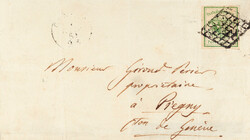 Monsieur Girod-Périer
propriétaire
à Pregny
Cton de Genève